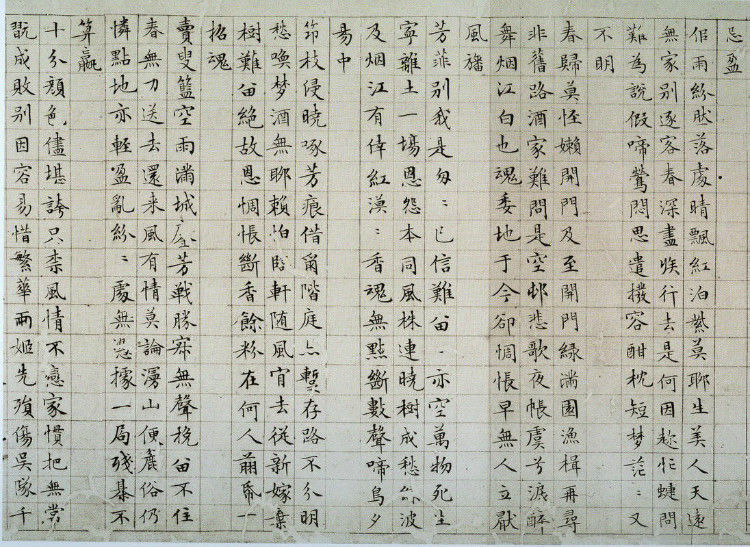 忌盈
佀雨紛肰落處晴飄紅泊紫莫聊生美人天遠
無家別逐客春深盡族行去是何因趂忙蜨問
難為說假啼鶯悶思遣撥容酣枕短夢茫〻又
不明
春歸莫恠嬾開門及至開門綠滿園漁楫再尋
非舊路酒家難問是空邨悲歌夜帳虞兮淚醉
舞烟江白也魂委地于今卻惆悵早無人立厭
風旛
芳菲別我是匆〻已信難畄〻亦空萬物死生
寧離土一場恩怨本同風株連曉樹成愁綠波
及烟江有倖紅漠〻香魂無點斷數聲啼鳥夕
昜中
節枝侵曉啄芳痕借爾階庭亦暫存路不分明
愁喚梦酒無聊賴怕臨軒隨風肎去從新嫁棄
樹難畄絕故恩惆悵斷香餘粉在何人翦紙一
招魂
賣叟籃空雨滿城飛芳戰勝寂無聲挽畄不住
春無力送去還来風有情莫論漫山便麄俗仍
憐點地亦輕盈亂紛〻處無憑據一局殘棊不
算贏
十分顏色儘堪誇只柰風情不戀家慣把無常
翫成敗別因容易惜繁華兩姬先殞傷吳隊千